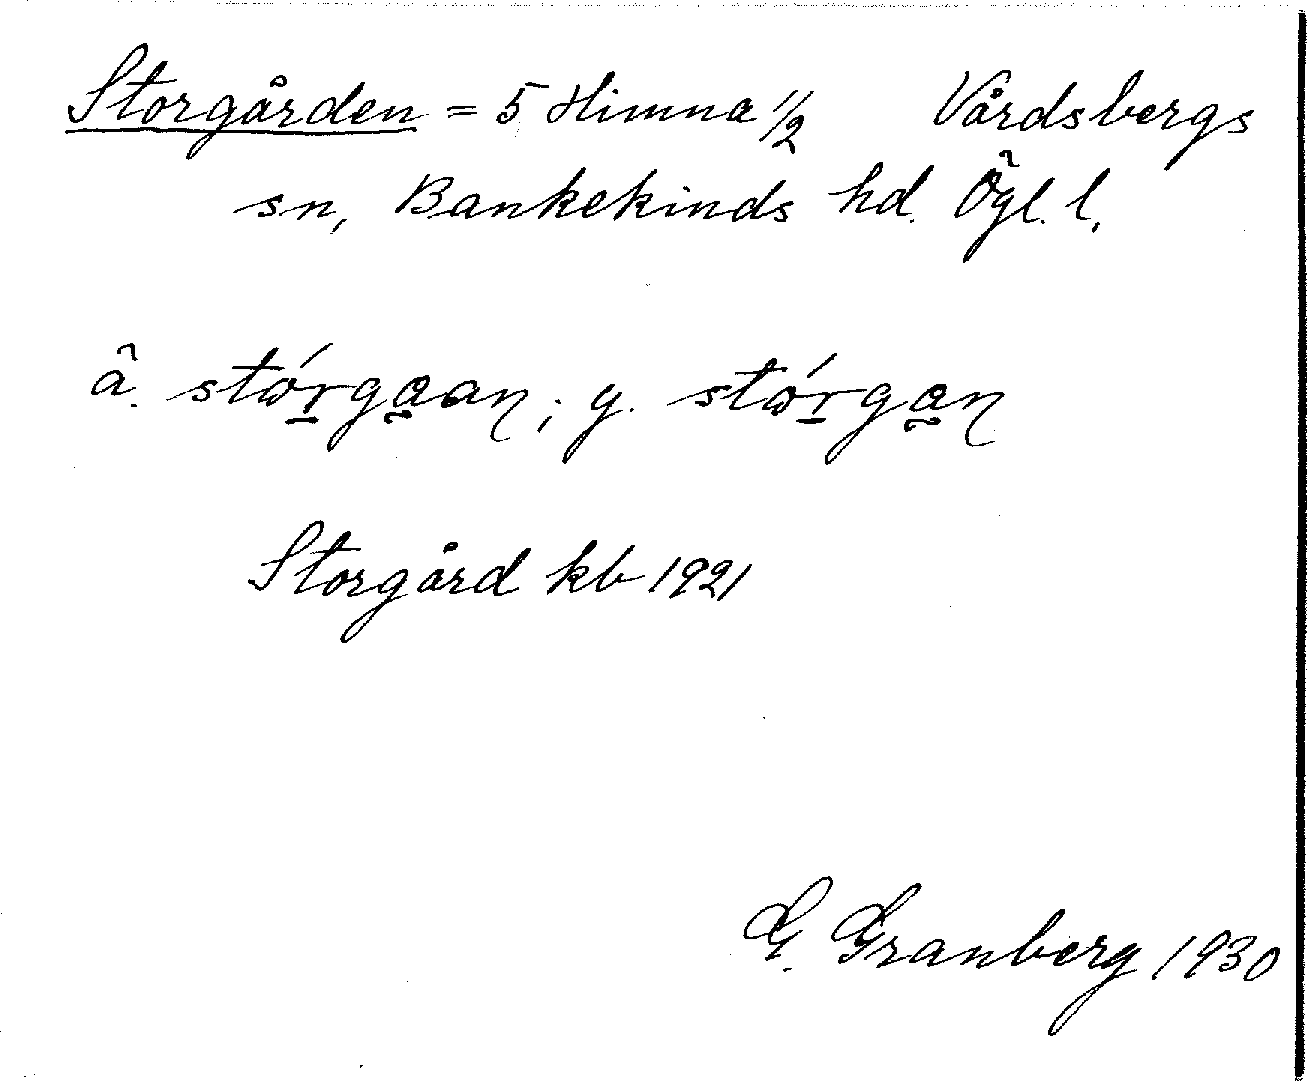 Storgården = 5 Himna 1/2 Vårdsbergs
sn, Bankekinds hd. Ögl. l.
ä. stώr̲ga̰aɳ; y. stώr̲ga̰ɳ
Storgård kb 1921
G. Granberg 1930